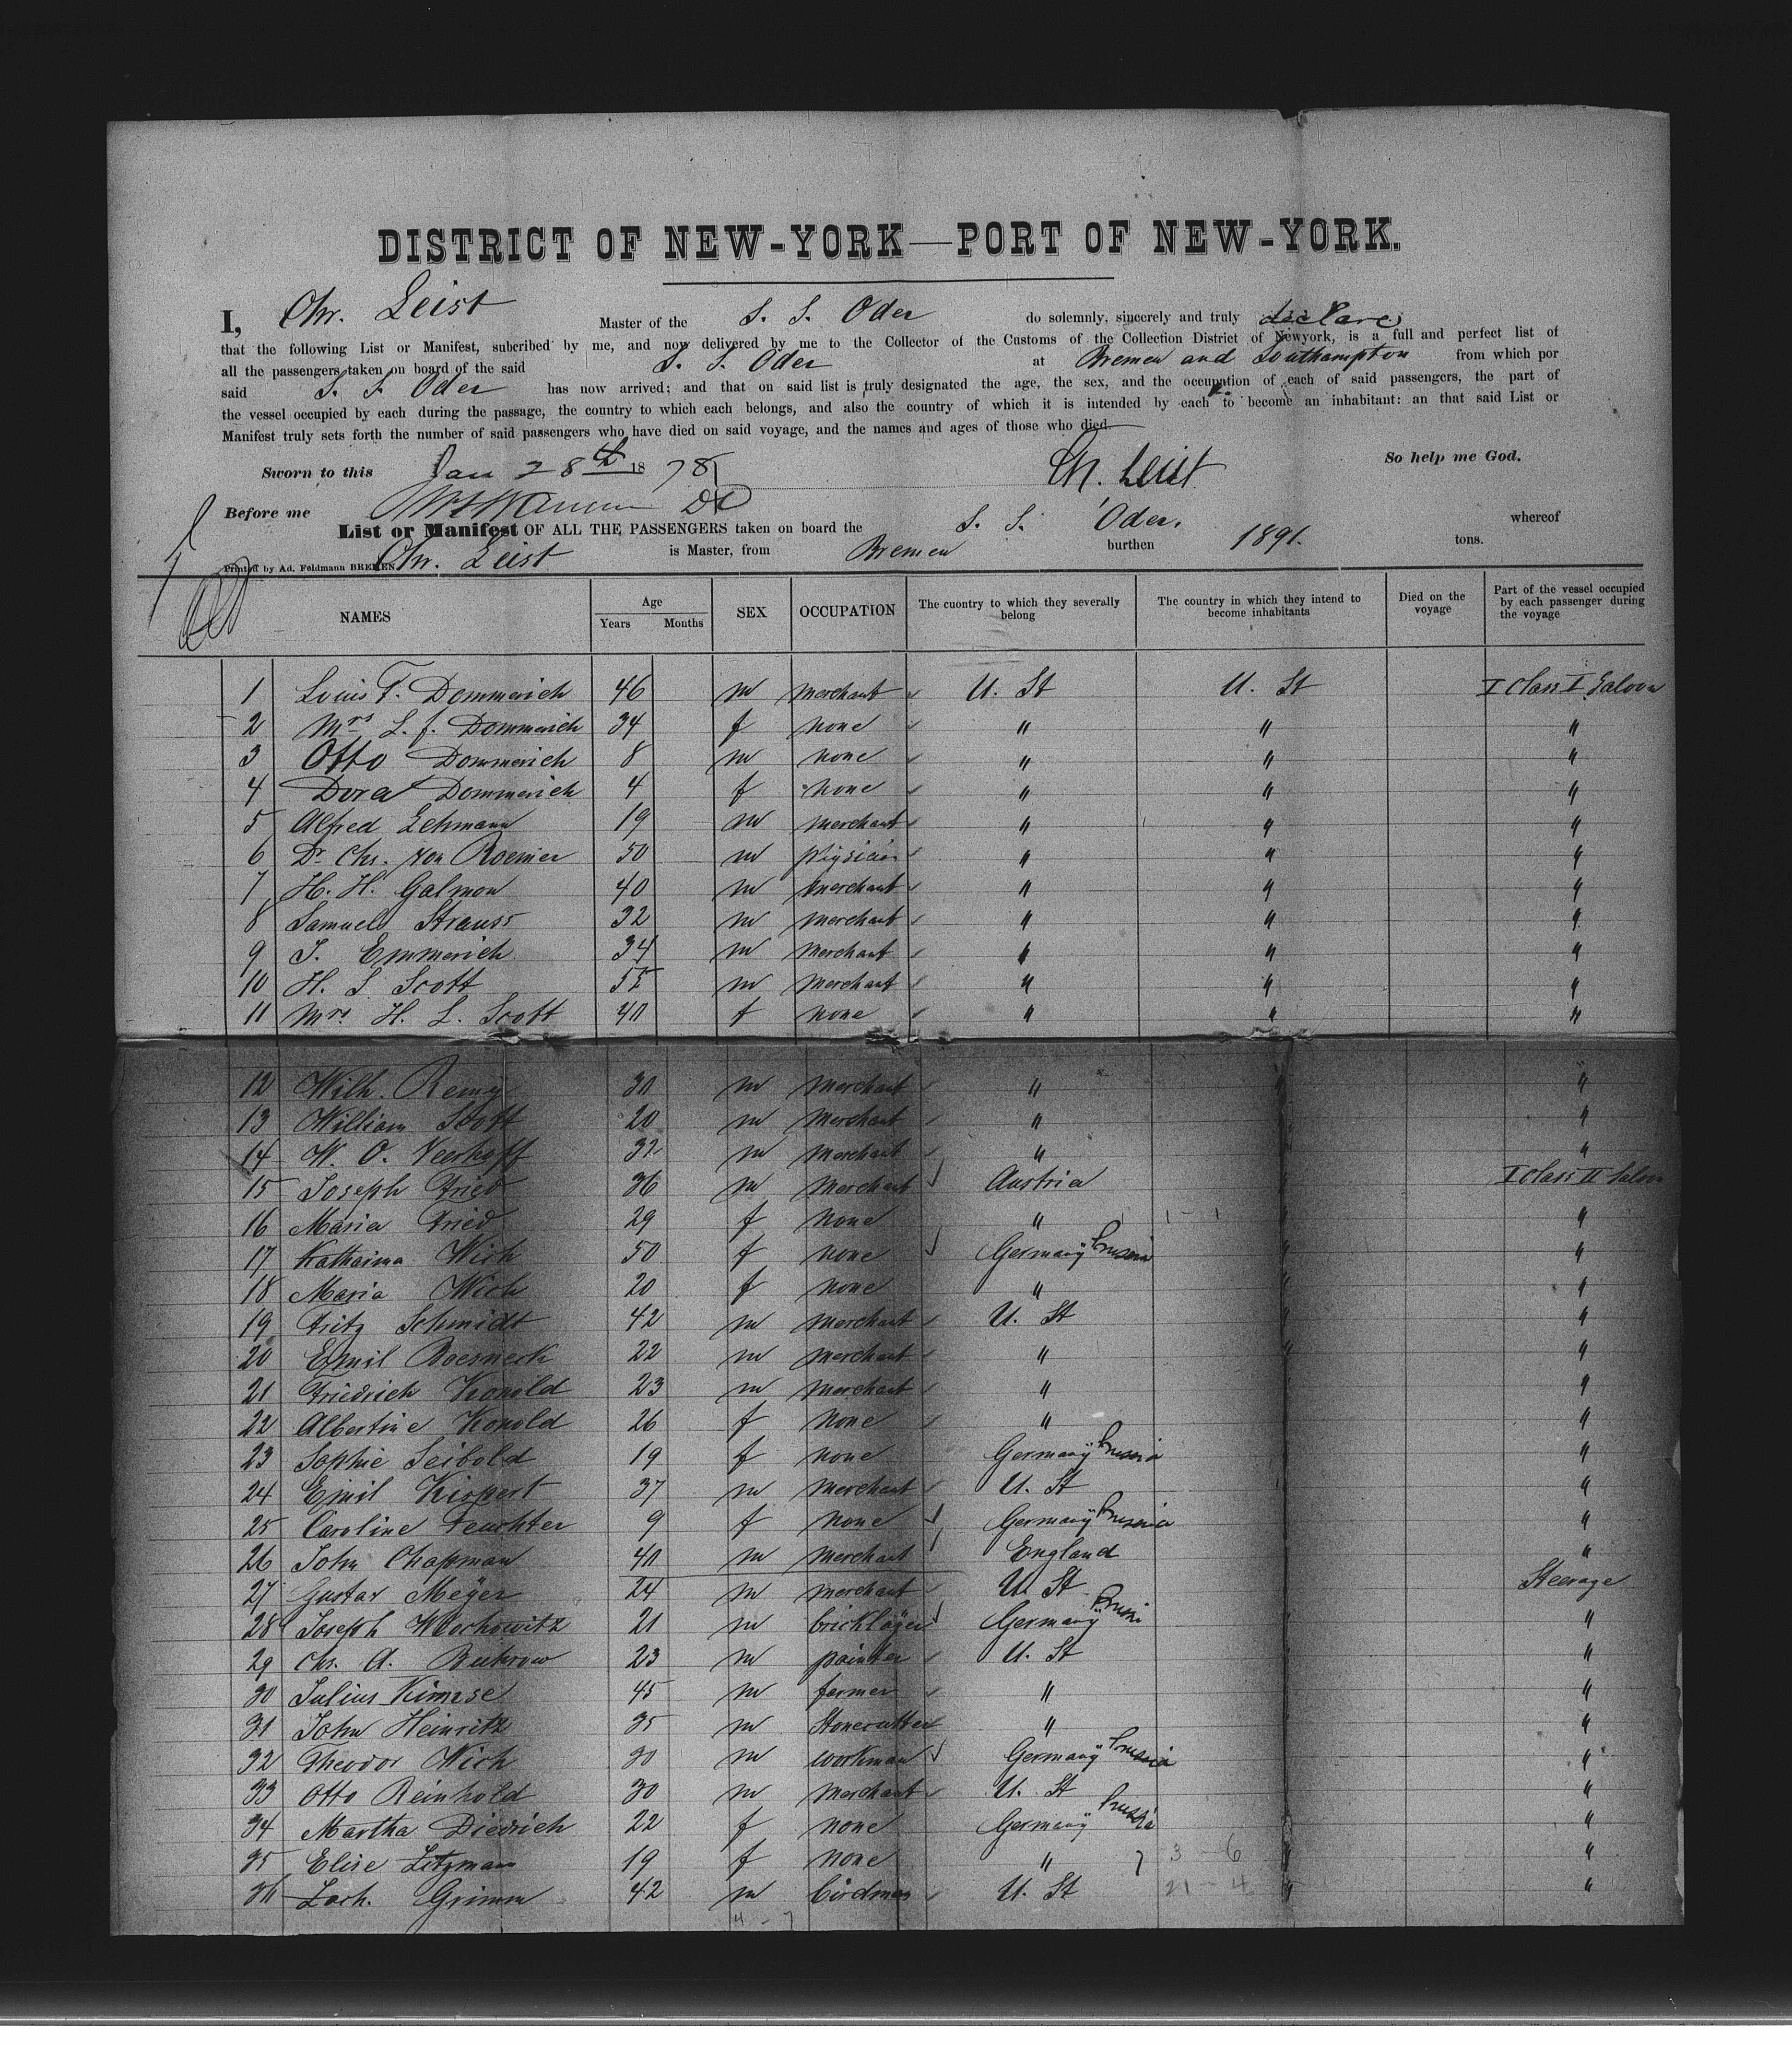 DISTRICT OF NEW-YORK—PORT OF NEW-YORK.
I, Chr. Leist Master of the S. S. Oder do solemnly, sincerely and truly declare
that the following List or Manifest, subcribed by me, and now delivered by me to the Collector of the Customs of the Collection District of Newyork, is a full and perfect list of
all the passengers taken on board of the said S. S. Oder at Bremen and Southampton from which por
said S. S. Oder has now arrived; and that on said list is truly designated the age, the sex, and the occupation of each of said passengers, the part of
the vessel occupied by each during the passage, the country to which each belongs, and also the country of which it is intended by each to become an inhabitant: an that said List or
Manifest truly sets forth the number of said passengers who have died on said voyage, and the names and ages of those who died.
Sworn to this Jan 28th 1878 Ch. Leist So help me God.
Before me
List or Manifest OF ALL THE PASSENGERS taken on board the S. S. Oder. whereof
Chr. Leist is Master, from Bremen burthen 1891. tons.
Printed by Ad. Feldmann BREMEN
NAMES Age Years Months SEX OCCUPATION The cuontry to which they severally belong The country in which they intend to become inhabitants Died on the voyage Part of the vessel occupied by each passenger during the voyage
1 Louis F. Dommerich 46 m merchant U. St U. St I Class I Saloon
2 Mrs L. f. Dommerich 34 f none " " "
3 Otto Dommerich 8 m none " " "
4 Dora Dommerich 4 f none " " "
5 Alfred Lehmann 19 m merchant " " "
6 Dr Chr. von Roemer 50 m physician " " "
7 H. H. Galmon 40 m merchant " " "
8 Samuel Strauss 32 m merchant " " "
9 J. Emmerich 34 m merchant " " "
10 H. L Scott 55 m merchant " " "
11 Mrs H. L. Scott 40 f none " " "
12 Wilh. Remy 30 m merchant " " "
13 William Scott 20 m merchant " "
14 W. O. Veerhoff 32 m merchant " "
15 Joseph Fried 36 m merchant Austria I Class II Saloon
16 Maria Fried 29 f none " 1 - 1 "
17 Katharina Wich 50 f none Germany Prussia " "
18 Maria Wich 20 f none " " "
19 Fritz Schmidt 42 m merchant U. St " "
20 Emil Boesneck 22 m merchant " " "
21 Friedrich Konold 23 m merchant " "
22 Albertine Konold 26 f none " "
23 Sophie Seibold 19 f none Germany Prussia "
24 Emil Kispert 37 m merchant U. St "
25 Caroline Feuchter 9 f none Germany Prussia "
26 John Chapman 40 m merchant England "
27 Gustav Meyer 24 m merchant U. St Steerage
28 Joseph 21 m bricklayer Germany Prussia "
29 Chr. A. Buhrow 23 m painter U. St "
30 Julius 45 m farmer " "
31 John Heinritz 35 m Stonecutter " "
32 Theodor Wich 30 m workman Germany Prussia "
33 Otto Reinhold 30 m merchant U. St "
34 Martha Diedrich 22 f none Germany Prussia "
35 Elise Litzmann 19 f none " 7 3 - 6 " "
36 Zach. Grimm 42 m birdman U. St 21 - 4 " "
4 - 7